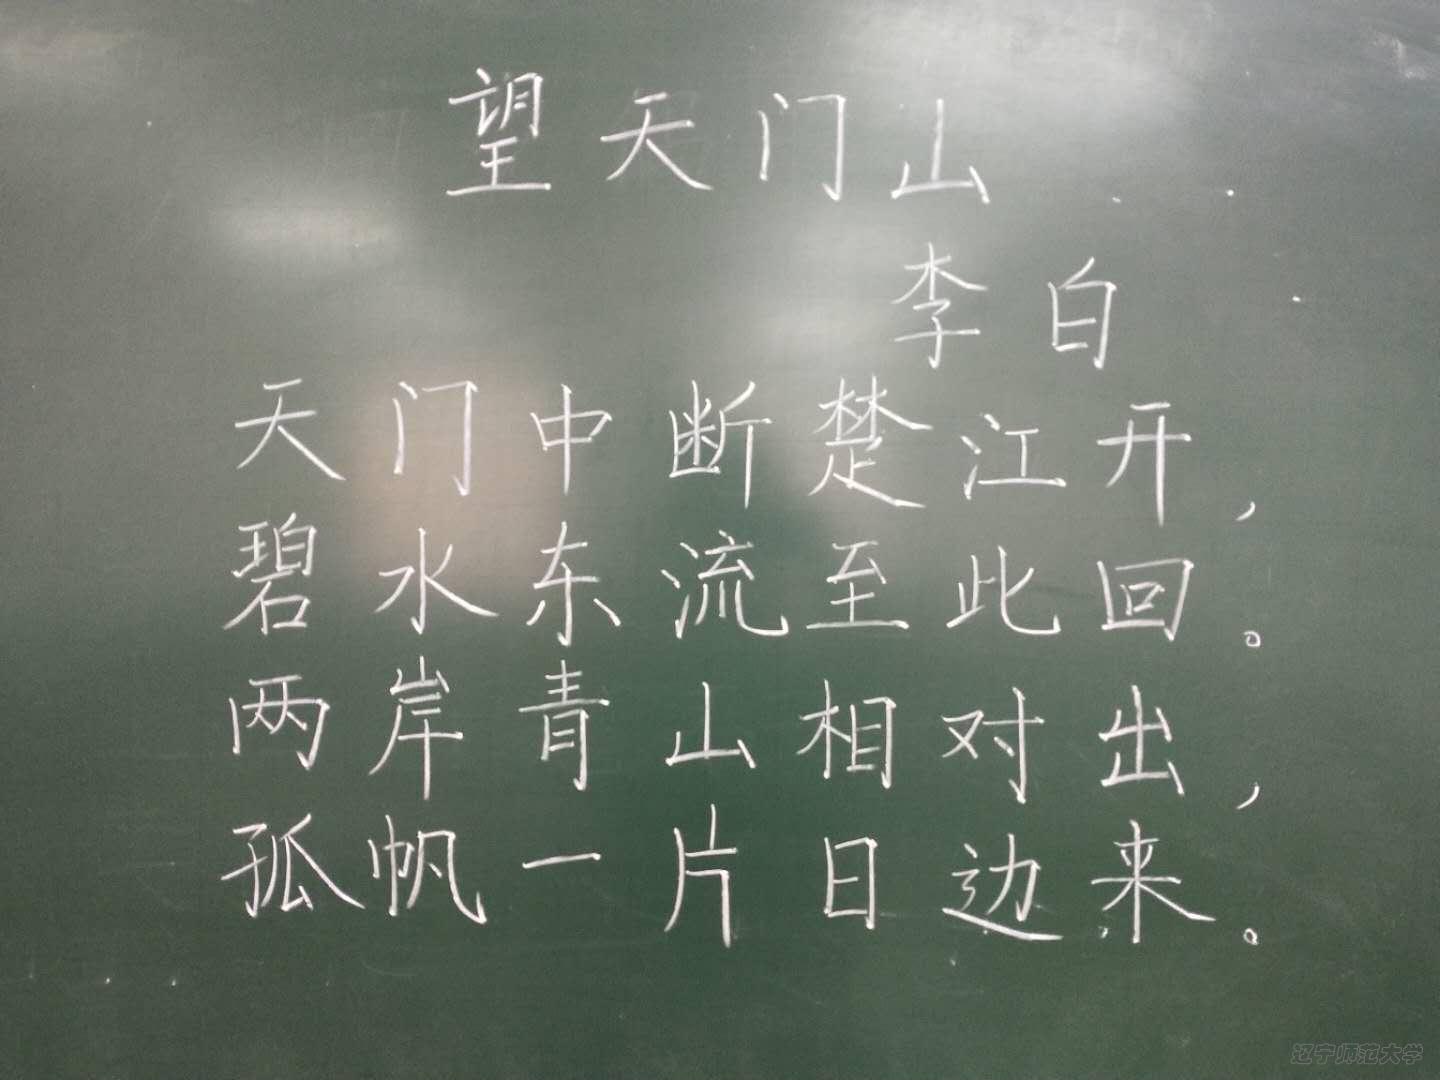 望天门山
李白
天门中断楚江开，
碧水东流至此回。
两岸青山相对出，
孤帆一片日边来。
辽宁师范大学